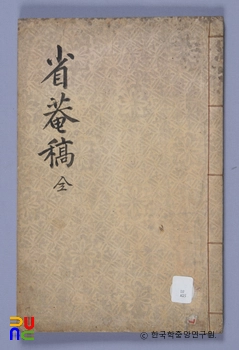 省菴稿
全
한국학중앙연구원